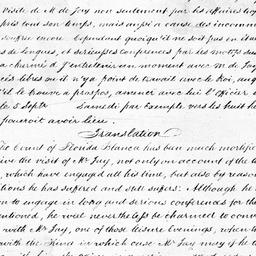 Visite de M de Jay non seulement par les affaires qui
pris tout son temps, mais aussi a cause des incomm
souffre encore Cependant quoiqu'il ne soit pas en etat
de longues, et serieuses Conferences par les motifs
charmé de J'entretenir un moment avec M de Jay
ces libres ou il n'y a point de travail avec le Roi,
il le trouve a propos, amener avec lui l'Officier
le 5 Septr Samedi par Exemple vers les huit he
pourroit avoir lieu.
Translation
The Count of Florida Blanca has been much mortified
give the visit of Mr Jay, not only on account of the
which have engaged all his time, but also by reason
tions he has suffered and still suffers. Although he
to engage in long and serious conferences for the
entioned, he will nevertheless be charmed to conv
with Mr Jay, one of those leisure evenings, when
with the King in which case Mr Jay may if he t